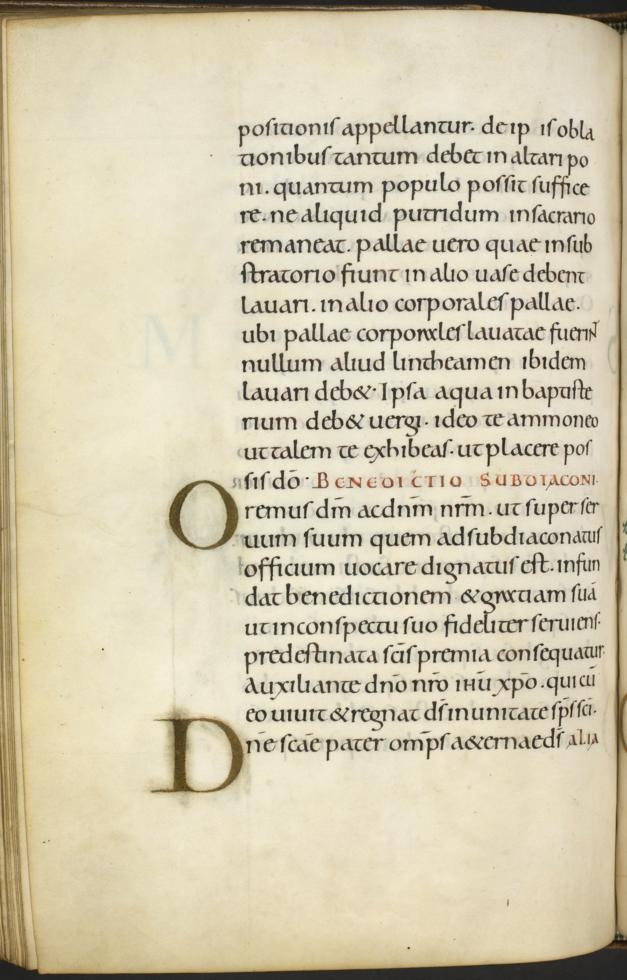 positionis appellantur. de ip is obla
tionibus tantum debet in altari po
ni. quantum populo possit suffice
re. ne aliquid putridum in sacrario
remaneat. pallae uero quae in sub
stratorio fiunt in alio uase debent
lauari. in alio corporales pallae.
ubi pallae corporales lauatae fuerint̄
nullum aliud lintheamen ibidem
lauari deb&. Ipsa aqua in baptiste
rium deb& uergi. ideo te ammoneo
ut talem te exhibeas. ut placere pos
sis dō. BENEDICTIO SUBDIACONI.
Oremus dm̄ ac dnm̄ nrm̄. ut super ser
uum suum quem ad subdiaconatus
officium uocare dignatus est. infun
dat benedictionem & gratiam suā
ut in conspectu suo fideliter seruiens.
predestinata scīs premia consequatur.
Auxiliante dnō nrō ihū xpō. qui cū
eo uiuit & regnat ds̄ in unitate sps̄ scī.
Dnē scāe pater omp̄s a&ernae ds̄ ALIA